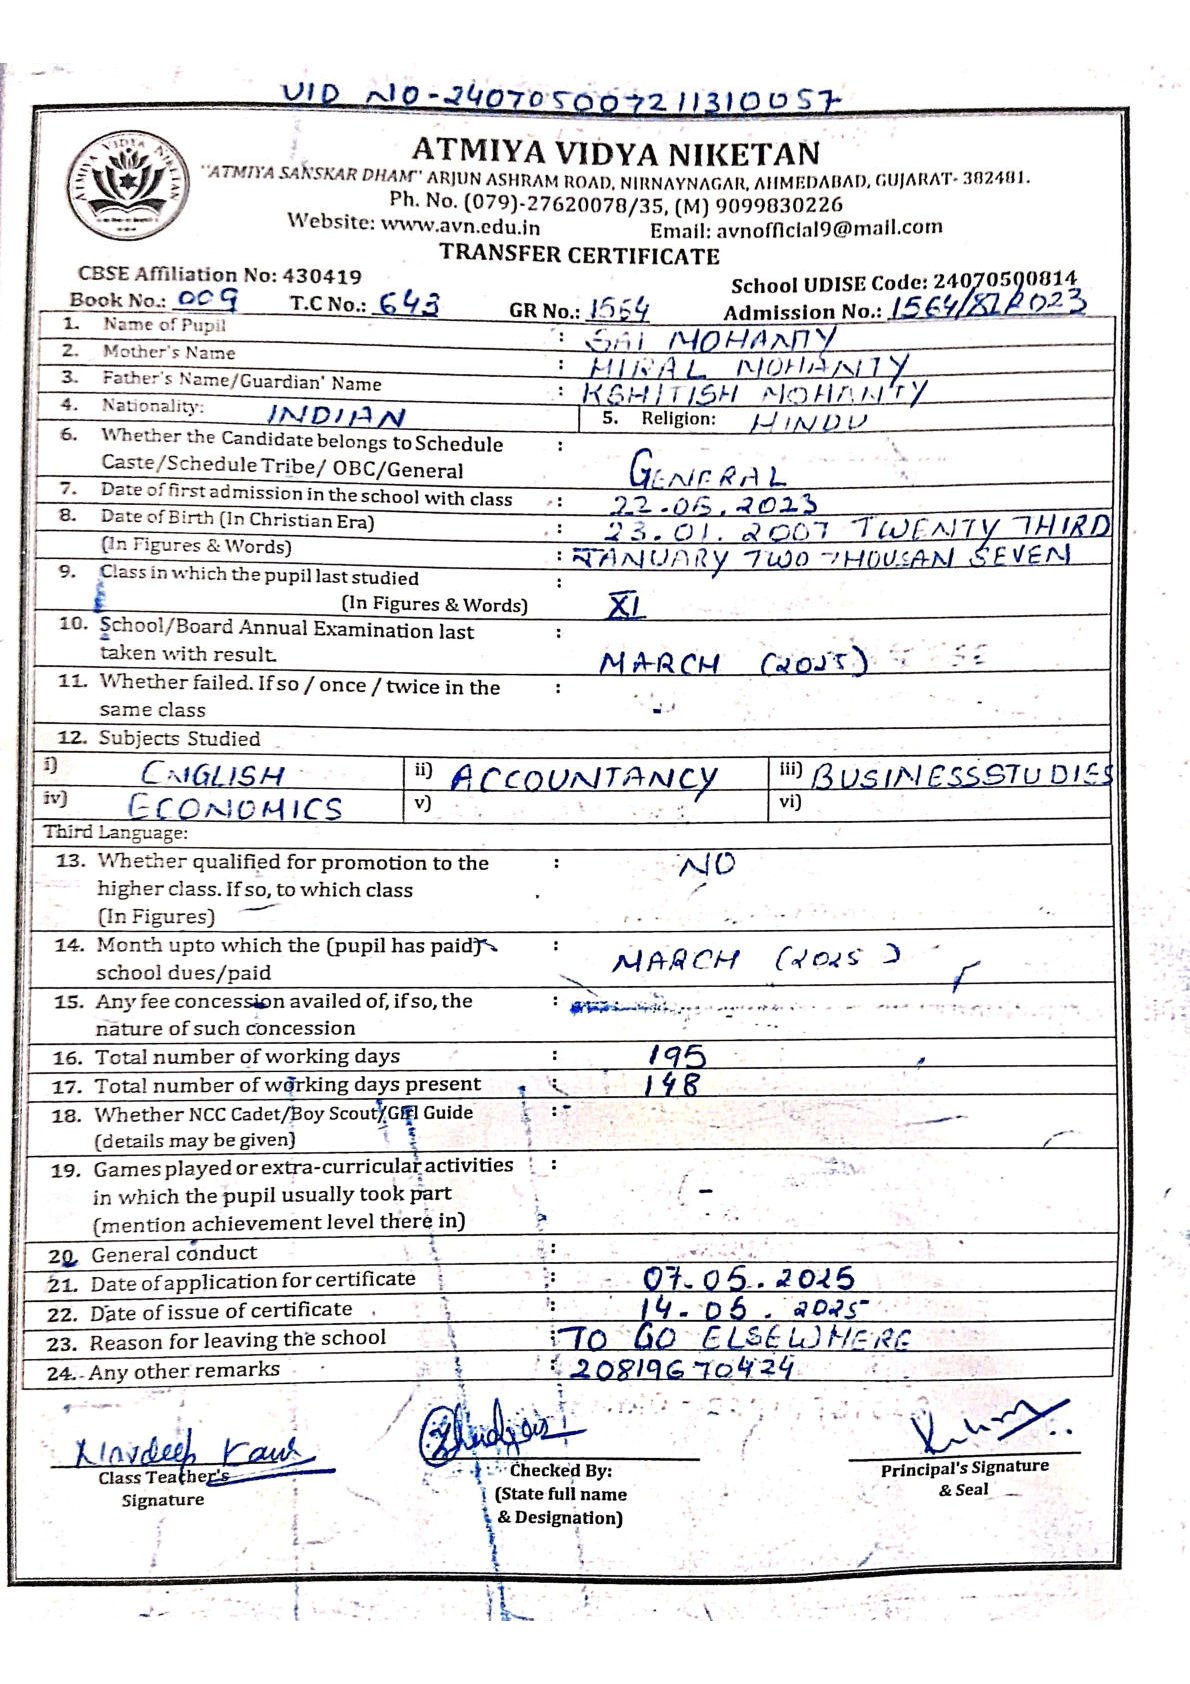 UID NO-240705007211310057
ATMIYA VIDYA NIKETAN
ATMIYA VIDYA NIKETAN
"ATMIYA SANSKAR DHAM" ARJUN ASHRAM ROAD, NIRNAYNAGAR, AHMEDABAD, GUJARAT- 382481.
Ph. No. (079)-27620078/35, (M) 9099830226
Website: www.avn.edu.in Email: avnofficial9@mail.com
TRANSFER CERTIFICATE
CBSE Affiliation No: 430419 School UDISE Code: 24070500814
Book No.: 009 T.C No.: 643 GR No.: 1564 Admission No.: 1564/81/2023
1. Name of Pupil : SAI MOHANTY
2. Mother's Name : HIRAL MOHANTY
3. Father's Name/Guardian' Name : KSHITISH MOHANTY
4. Nationality: INDIAN 5. Religion: HINDU
6. Whether the Candidate belongs to Schedule :
Caste/Schedule Tribe/ OBC/General GENERAL
7. Date of first admission in the school with class : 22.06.2023
8. Date of Birth (In Christian Era) : 23.01.2007 TWENTY THIRD
(In Figures & Words) : JANUARY TWO THOUSAN SEVEN
9. Class in which the pupil last studied :
(In Figures & Words) XI
10. School/Board Annual Examination last :
taken with result. MARCH (2025)
11. Whether failed. If so / once / twice in the :
same class -
12. Subjects Studied
i) ENGLISH ii) ACCOUNTANCY iii) BUSINESSSTUDIES
iv) ECONOMICS v) vi)
Third Language:
13. Whether qualified for promotion to the : NO
higher class. If so, to which class
(In Figures)
14. Month upto which the (pupil has paid) : MARCH (2025)
school dues/paid
15. Any fee concession availed of, if so, the :
nature of such concession
16. Total number of working days : 195
17. Total number of working days present : 148
18. Whether NCC Cadet/Boy Scout/Girl Guide : -
(details may be given)
19. Games played or extra-curricular activities :
in which the pupil usually took part -
(mention achievement level there in)
20. General conduct :
21. Date of application for certificate : 07.05.2025
22. Date of issue of certificate : 14.05.2025
23. Reason for leaving the school : TO GO ELSEWHERE
24. Any other remarks : 20819670424
Navdeep Kaur
Class Teacher's Checked By: Principal's Signature
Signature (State full name & Seal
& Designation)